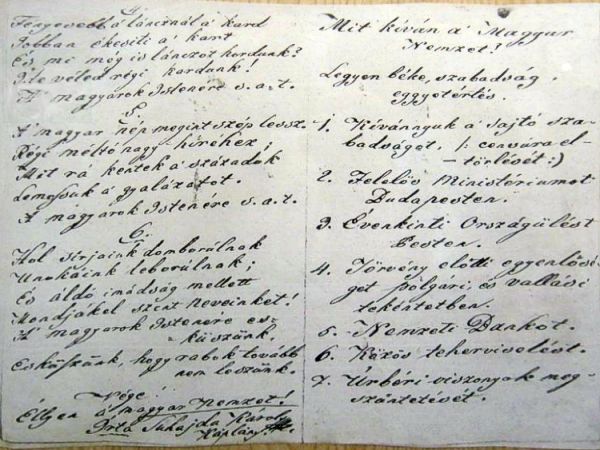 4.
Fényesebb a láncznál a' kard
Jobban ékesiti a' kart
És mi még is lánczot hordunk?
Ide veled régi kardunk!
A' magyarok Istenére s. a. t.
5.
A' magyar nép megint szép lessz.
Régi méltó nagy hiréhez;
Mit rá kentek a' századok
Lemossuk a gyalázatot.
A' magyarok Istenére s. a. t.
6.
Hol sirjaink domborúlnak
Unokáink leborúlnak;
És áldó imádság mellett
Mondják el szent neveinket!
A' magyarok Istenére es-
küszünk,
Esküszünk, hogy rabok tovább
nem leszünk.
Vége!
Éllyen a' magyar Nemzet!
Írta Suhajda Károly
Káplány
Mit kíván a' Magyar
Nemzet?
Legyen béke, szabadság,
eggyetértés.
1. Kívánnyuk a' sajtó sza-
badságot, /: censura el-
törlését :)
2. Felelős Ministériumot
Budapesten.
3. Évenkinti Országülést
Pesten.
4. Törvény előtti egyenlősé-
get polgári, és vallási
tekéntetben.
5. Nemzeti Bankot.
6. Közös teherviselést.
7. Úrbéri viszonyak meg-
szüntetését.